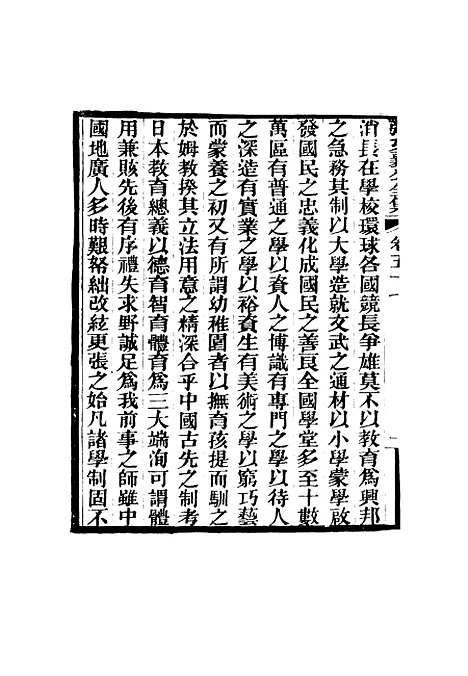 張文襄公全集 卷五十一
消長在學校環球各國競長爭雄莫不以教育爲興邦
之急務其制以大學造就文武之通材以小學蒙學啟
發國民之忠義化成國民之善良全國學堂多至十數
萬區有普通之學以資人之博識有專門之學以待人
之深造有實業之學以裕資生有美術之學以窮巧藝
而蒙養之初又有所謂幼稚園者以撫育孩提而馴之
於姆教揆其立法用意之精深合乎中國古先之制考
日本教育總義以德育智育體育爲三大端洵可謂體
用兼賅先後有序禮失求野誠足爲我前事之師雖中
國地廣人多時艱帑絀改絃更張之始凡諸學制固不